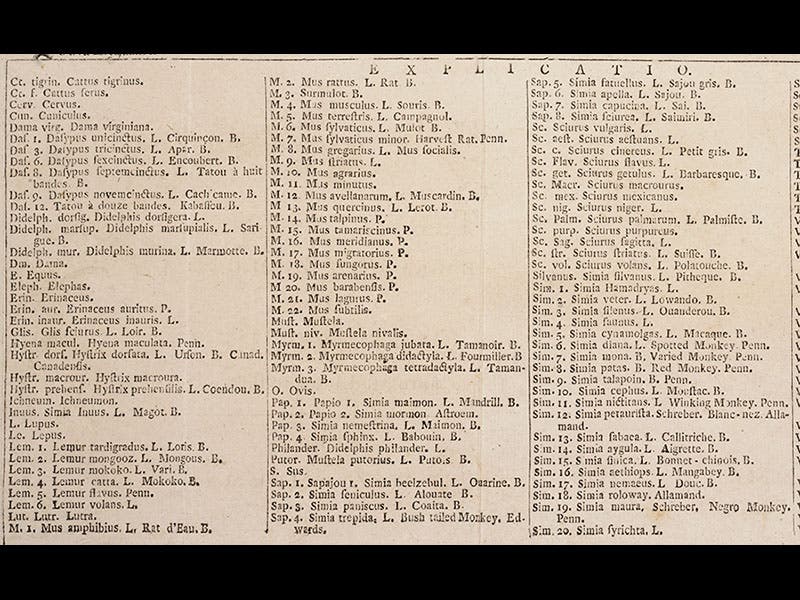 E X P L I C A T I O.
Ct. tigrin. Cattus tigrinus.
Ct. f. Cattus ferus.
Cerv. Cervus.
Cun. Cuniculus.
Dama virg. Dama virginiana.
Daſ. 1. Daſypus unicinctus. L. Cirquinçon. B.
Daſ. 3. Daſypus tricinctus. L. Apar. B.
Daſ. 6. Daſypus ſexcinctus. L. Encoubert. B.
Daſ. 8. Daſypus ſeptemcinctus. L. Tatou à huit
bandes. B.
Daſ. 9. Daſypus novemcinctus. L. Cachicame. B.
Daſ. 12. Tatou à douze bandes. Kabaſſou. B.
Didelph. dorſig. Didelphis dorſigera. L.
Didelph. marſup. Didelphis marſupialis. L. Sari
gue. B.
Didelph. mur. Didelphis murina. L. Marmotte. B.
Dm. Dama.
E. Equus.
Eleph. Elephas.
Erin. Erinaceus.
Erin. aur. Erinaceus auritus. P.
Erin. inaur. Erinaceus inauris. L.
Glis. Glis ſciurus. L. Loir. B.
Hyena macul. Hyena maculata. Penn.
Hyſtr. dorſ. Hyſtrix dorſata. L. Urſon. B. Canad.
Canadenſis.
Hyſtr. macrour. Hyſtrix macroura.
Hyſtr. prehenſ. Hyſtrix prehenſilis. L. Coendou. B.
Ichneum. Ichneumon.
Inuus. Simia Inuus. L. Magot. B.
L. Lupus.
Le. Lepus.
Lem. 1. Lemur tardigradus. L. Loris. B.
Lem. 2. Lemur mongooz. L. Mongous. B.
Lem. 3. Lemur mokoko. L. Vari. B.
Lem. 4. Lemur catta. L. Mokoko. B.
Lem. 5. Lemur flavus. Penn.
Lem. 6. Lemur volans. L.
Lut. Lutr. Lutra.
M. 1. Mus amphibius. L. Rat d'Eau. B.
M. 2. Mus rattus. L. Rat B.
M. 3. Surmulot. B.
M. 4. Mus musculus L. Souris. B.
M. 5. Mus terreſtris. L. Campagnol.
M. 6. Mus ſylvaticus. L. Mulot B.
M. 7. Mus ſylvaticus minor. Harveſt Rat. Penn.
M. 8. Mus gregarius. L. Mus ſocialis.
M. 9. Mus ſtriatus. L.
M. 10. Mus agrarius.
M. 11. Mus minutus.
M. 12. Mus avellanarum. L. Muscardin. B.
M. 13. Mus quercinus. L. Lerot. B.
M. 14. Mus talpinus. P.
M. 15. Mus tamariscinus. P.
M. 16. Mus meridianus. P.
M. 17. Mus migratorius. P.
M. 18. Mus ſungorus. P.
M. 19. Mus arenarius. P.
M 20. Mus barabenſis. P.
M. 21. Mus lagurus. P.
M. 22. Mus ſubtilis.
Muſt. Muſtela.
Muſt. niv. Muſtela nivalis.
Myrm. 1. Myrmecophaga jubata. L. Tamanoir. B.
Myrm. 2. Myrmecophaga didactyla. L. Fourmiller. B
Myrm. 3. Myrmecophaga tetradactyla. L. Taman-
dua. B.
O. Ovis.
Pap. 1. Papio 1. Simia maimon. L. Mandrill. B.
Pap. 2. Papio 2. Simia mormon. Aſtroem.
Pap. 3. Simia nemeſtrina. L. Maimon. B.
Pap. 4. Simia ſphinx. L. Babouin. B.
Philander. Didelphis philander. L.
Putor. Muſtela putorius. L. Putois. B.
S. Sus.
Sap. 1. Sapajou 1. Simia beelzebul. L. Ouarine. B.
Sap. 2. Simia ſeniculus. L. Alouate B.
Sap. 3. Simia paniscus. L. Coaita. B.
Sap. 4. Simia trepida. L. Bush tailed Monkey. Ed-
wards.
Sap. 5. Simia fatuellus. L. Sajou gris. B.
Sap. 6. Simia apella. L. Sajou. B.
Sap. 7. Simia capucina. L. Sai. B.
Sap. 8. Simia ſciurea. L. Saimiri. B.
Sc. Sciurus vulgaris. L.
Sc. aeſt. Sciurus aeſtuans. L.
Sc. c. Sciurus cinereus. L. Petit gris. B.
Sc. Flav. Sciurus flavus. L.
Sc. get. Sciurus getulus. L. Barbaresque. B.
Sc. Macr. Sciurus macrourus.
Sc. mex. Sciurus mexicanus.
Sc. nig. Sciurus niger. L.
Sc. Palm. Sciurus palmarum. L. Palmiſte. B.
Sc. purp. Sciurus purpureus.
Sc. Sag. Sciurus ſagitta. L.
Sc. ſtr. Sciurus ſtriatus. L. Suiſſe. B.
Sc. vol. Sciurus volans. L. Polatouche. B.
Silvanus. Simia ſilvanus. L. Pitheque. B.
Sim. 1. Simia Hamadryas. L.
Sim. 2. Simia veter. L. Lowando. B.
Sim. 3. Simia ſilenus. L. Ouanderou. B.
Sim. 4. Simia faunus. L.
Sim. 5. Simia cynamolgas. L. Macaque. B.
Sim. 6. Simia diana. L. Spotted Monkey. Penn.
Sim. 7. Simia mona. B. Varied Monkey. Penn.
Sim. 8. Simia patas. B. Red Monkey. Penn.
Sim. 9. Simia talapoin. B. Penn.
Sim. 10. Simia cephus. L. Mouſtac. B.
Sim. 11. Simia nictitans. L. Winking Monkey. Penn.
Sim. 12. Simia petauriſta. Schreber. Blanc-nez. Alla-
mand.
Sim. 13. Simia ſabaea. L. Callitriche. B.
Sim. 14. Simia aygula. L. Aigrette. B.
Sim. 15. Simia ſinica. L. Bonnet-chinois. B.
Sim. 16. Simia aethiops. L. Mangabey. B.
Sim. 17. Simia nemaeus. L Douc. B.
Sim. 18. Simia roloway. Allamand.
Sim. 19. Simia maura, Schreber, Negro Monkey.
Penn.
Sim. 20. Simia ſyrichta. L.